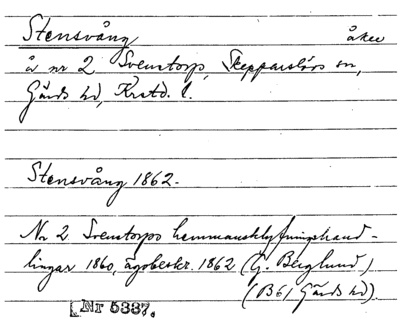 Stensvång åker
å nr 2 Svenstorp, Skepparslövs sn,
Gärds hd, Krstd. l.
Stensvång 1862.
Nr 2 Svenstorps hemmansklyfningshand-
lingar 1860, ägobeskr. 1862 (G. Berglund)
(B61 Gärds hd).
Nr 5337.